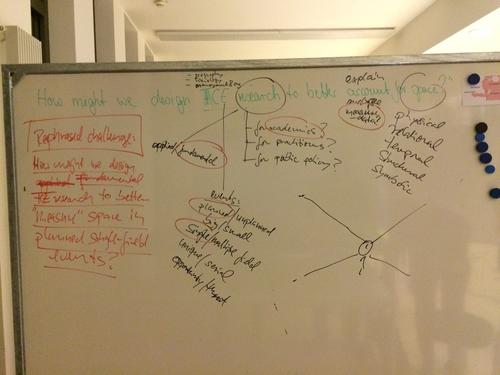 How might we design FCE research to better account for space?"
explain
physical
relational
temporal
structural
symbolic
applied/fundamental
for academics?
for practitioners?
for public policy?
Rephrased challenge:
How might we design
fundamental
FCE research to better
space in
planned single-field
events?
events:
planned/unplanned
big/small
single/multiple field
unique/serial
opportunity/threat